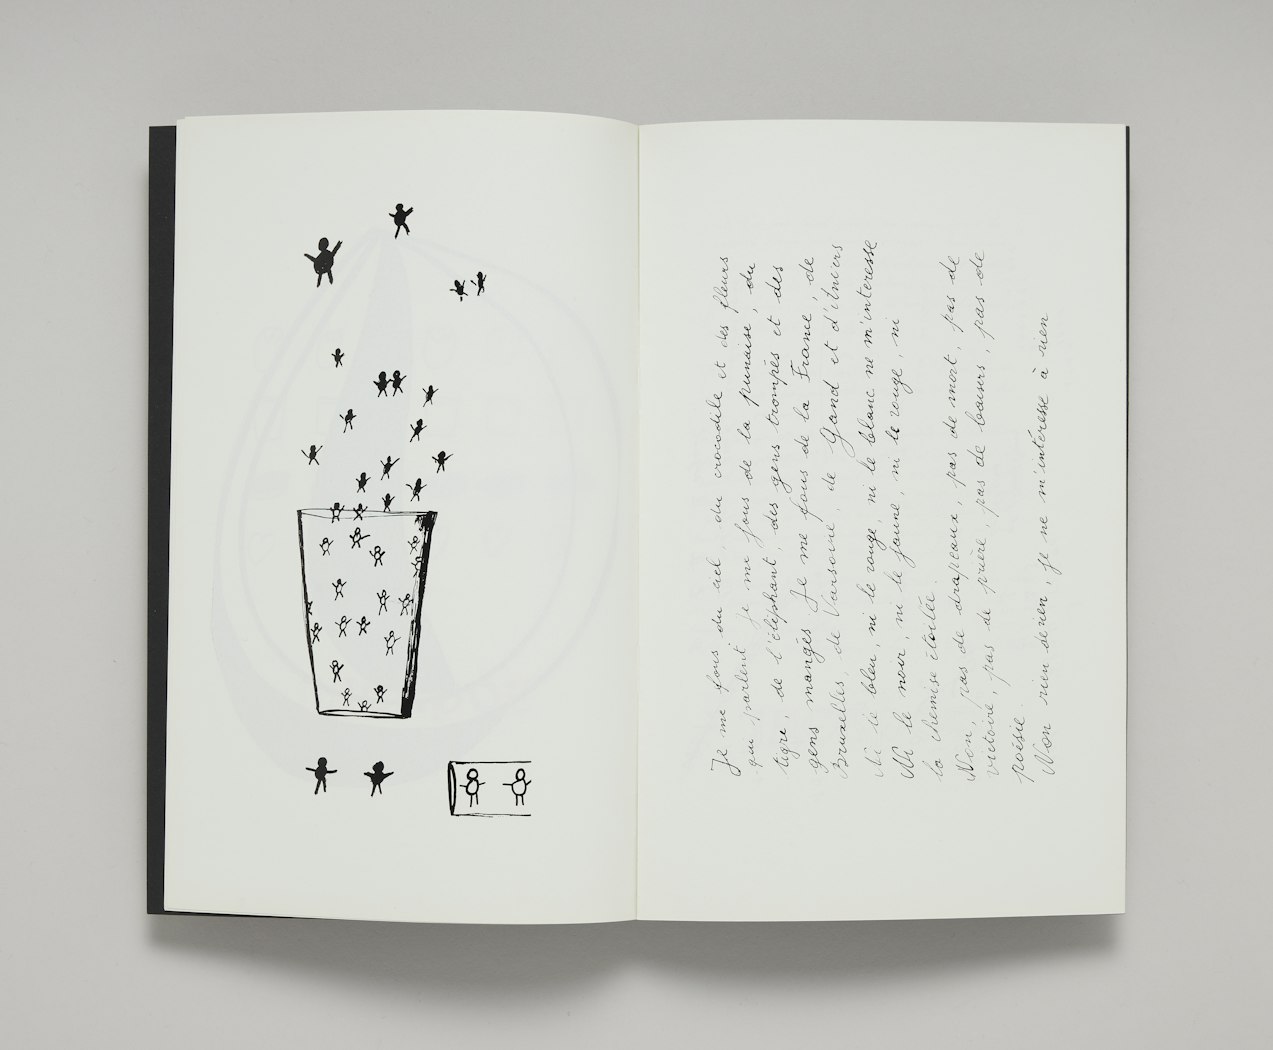 Je me fous du ciel, du crocodile et des fleurs
qui parlent. Je me fous de la punaise, du
tigre, de l'éléphant, des gens trompés et des
gens mangés. Je me fous de la France, de
Bruxelles, de Varsovie, de Gand et d'
Ni le bleu, ni le rouge, ni le blanc ne m'intéresse
Ni le noir, ni le jaune, ni le rouge, ni
la chemise étoilée.
Non, pas de drapeaux, pas de mort, pas de
victoire, pas de prière, pas de pas de
poésie.
Non rien de rien, je ne m'intéresse à rien